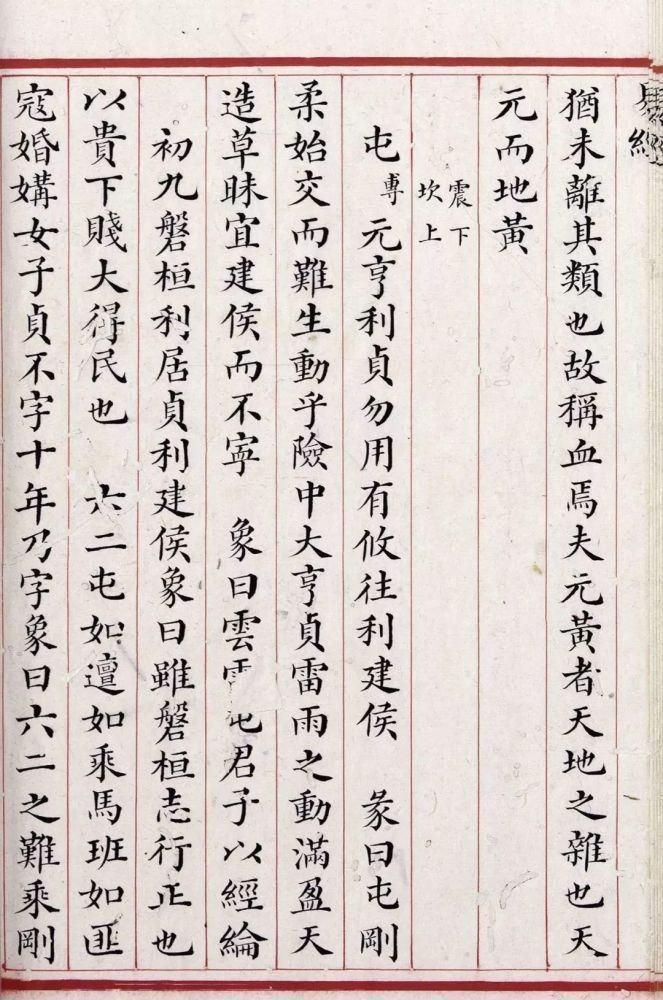 易經
猶未離其類也故稱血焉夫元黃者天地之雜也天
元而地黃
震下
坎上
屯專 元亨利貞勿用有攸往利建侯 彖曰屯剛
柔始交而難生動乎險中大亨貞雷雨之動滿盈天
造草昧宜建侯而不寧 象曰雲屯君子以經綸
初九磐桓利居貞利建侯象曰雖磐桓志行正也
以貴下賤大得民也 六二屯如邅如乘馬班如匪
寇婚媾女子貞不字十年乃字象曰六二之難乘剛